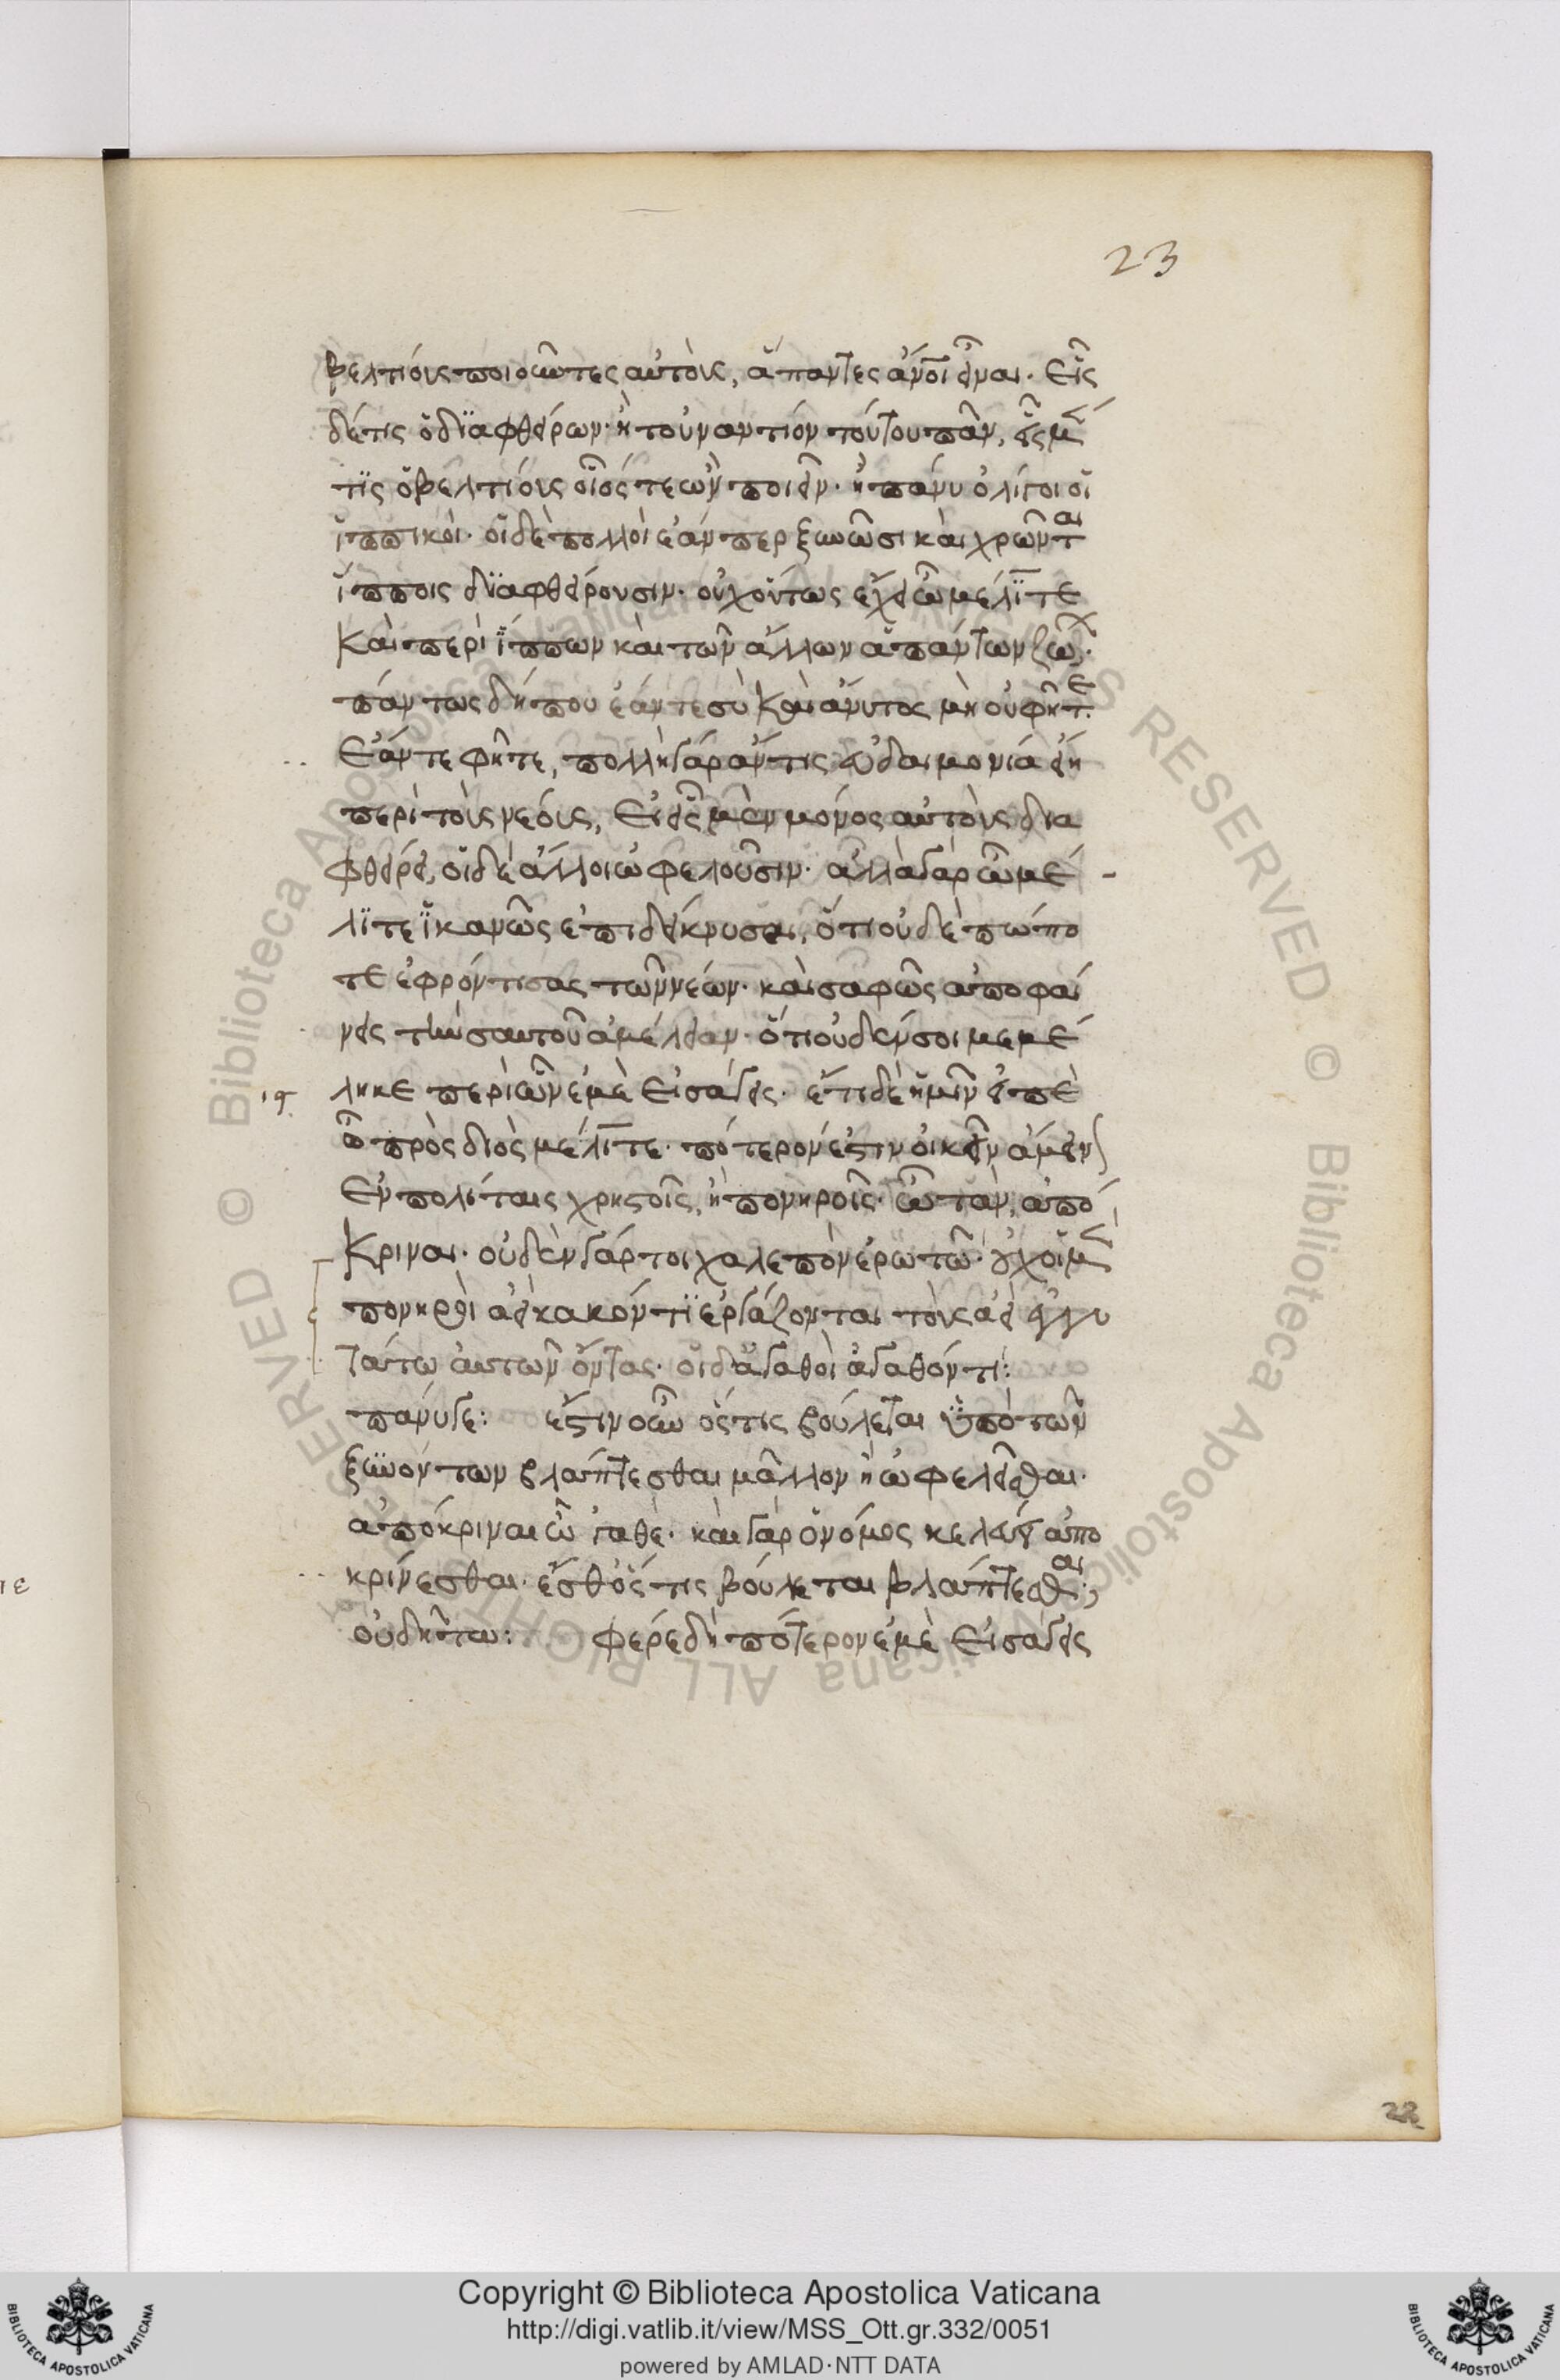 23
βελτίους ποιοῦντες αὐτοὺς, ἅπαντες ἄνοι εἶναι· εἷς
δέ τις ὁ διαφθείρων· ἢ τοὐναντίον τούτου πᾶν, εἷς μὲν
τις ὁ βελτίους οἷός τε ὢν ποιεῖν· ἢ πάνυ ὀλίγοι οἱ
ἱππικοί· οἱ δὲ πολλοὶ ἐάν περ ξυνῶσι καὶ χρῶνται
ἵπποις διαφθείρουσιν· οὐχ οὕτως ἔχει ὦ μέλιτε
καὶ περὶ ἵππων καὶ τῶν ἄλλων ἁπάντων ζώων·
πάντως δήπου ἐάν τε σὺ καὶ ἄνυτος μὴ οὐ φῆτε·
ἐάν τε φῆτε, πολλὴ γὰρ ἄν τις εὐδαιμονία εἴη
περὶ τοὺς νέους, εἰ εἷς μὲν μόνος αὐτοὺς δια
φθείρει, οἱ δὲ ἄλλοι ὠφελοῦσιν· ἀλλὰ γὰρ ὦ μέ
λιτε ἱκανῶς ἐπιδείκνυσαι, ὅτι οὐδὲ πώπο
τε ἐφρόντισας τῶν νέων· καὶ σαφῶς ἀποφαί
νεις τὴν σαυτοῦ ἀμέλειαν· ὅτι οὐδέν σοι μεμέ
ληκε περὶ ὧν ἐμὲ εἰσάγεις· ἔτι δὲ ἡμῖν εἰπὲ
ὦ πρὸς διὸς μέλιτε· πότερον ἐστιν οἰκεῖν ἄμεινον
ἐν πολίταις χρηστοῖς, ἢ πονηροῖς· ὦ τὰν, ἀπό
κριναι· οὐδὲν γάρ τοι χαλεπὸν ἐρωτῶ· οὐχ οἱ μὲν
πονηροὶ ἀεὶ κακόν τι ἐργάζονται τοὺς ἀεὶ ἐγγυ
τάτω αὐτῶν ὄντας· οἱ δ' ἀγαθοὶ ἀγαθόν τι:
πάνυ γε: ἔστιν οὖν ὅστις βούλεται ὑπὸ τῶν
ξυνόντων βλάπτεσθαι μᾶλλον ἢ ὠφελεῖσθαι·
ἀπόκριναι ὦ 'γαθέ· καὶ γὰρ ὁ νόμος κελεύει ἀπο
κρίνεσθαι· ἔσθ' ὅστις βούλεται βλάπτεσθαι;
οὐ δῆτα: φέρε δὴ πότερον ἐμὲ εἰσάγεις
22
Copyright © Biblioteca Apostolica Vaticana
http://digi.vatlib.it/view/MSS_Ott.gr.332/0051
powered by AMLAD·NTT DATA